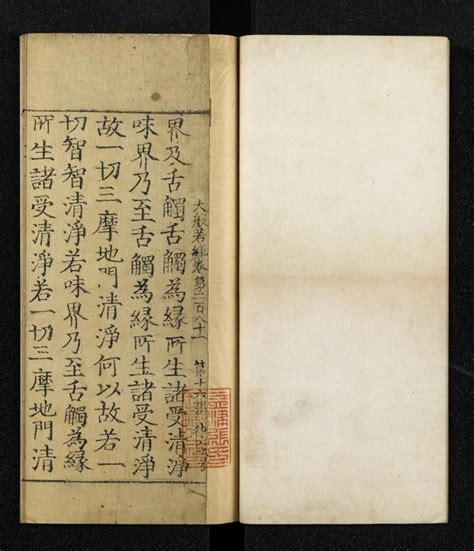 大般若經卷第二百八十一 第十六
界及舌觸舌觸為緣所生諸受清淨
味界乃至舌觸為緣所生諸受清淨
故一切三摩地門清淨何以故若一
切智智清淨若味界乃至舌觸為緣
所生諸受清淨若一切三摩地門清